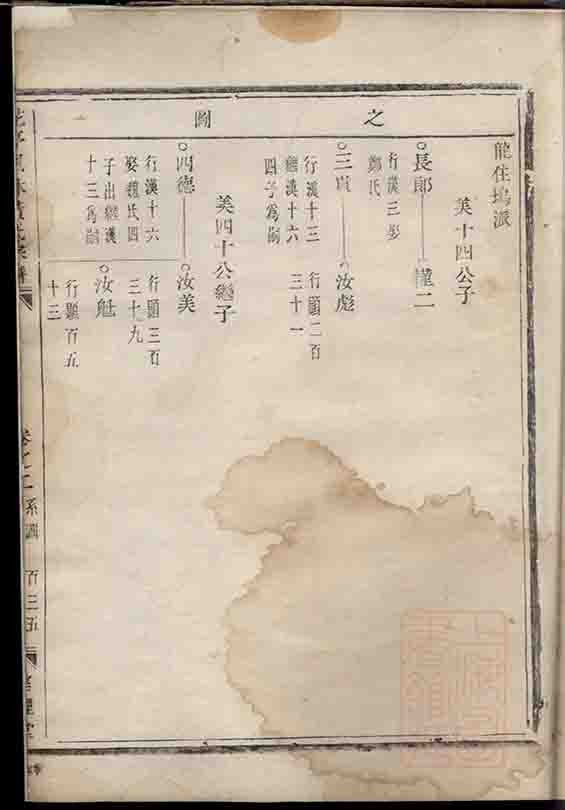 之圖
龍住塢派
美十四公子
長郎
懂二
行漢三娶
鄭氏
三寅
汝彪
行漢十三
繼漢十六
四子為嗣
行顯二百
三十一
美四十公繼子
四德
汝美
行漢十六
娶魏氏四
子出繼漢
十三為嗣
行顯三百
三十九
汝
行顯百五
十三
卷之二 系圖 百三五
上海圖書館藏